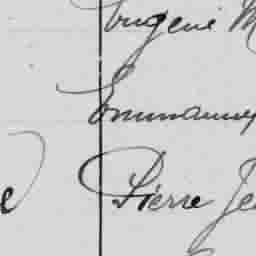 Eugène M
Emmanuel
Pierre Je